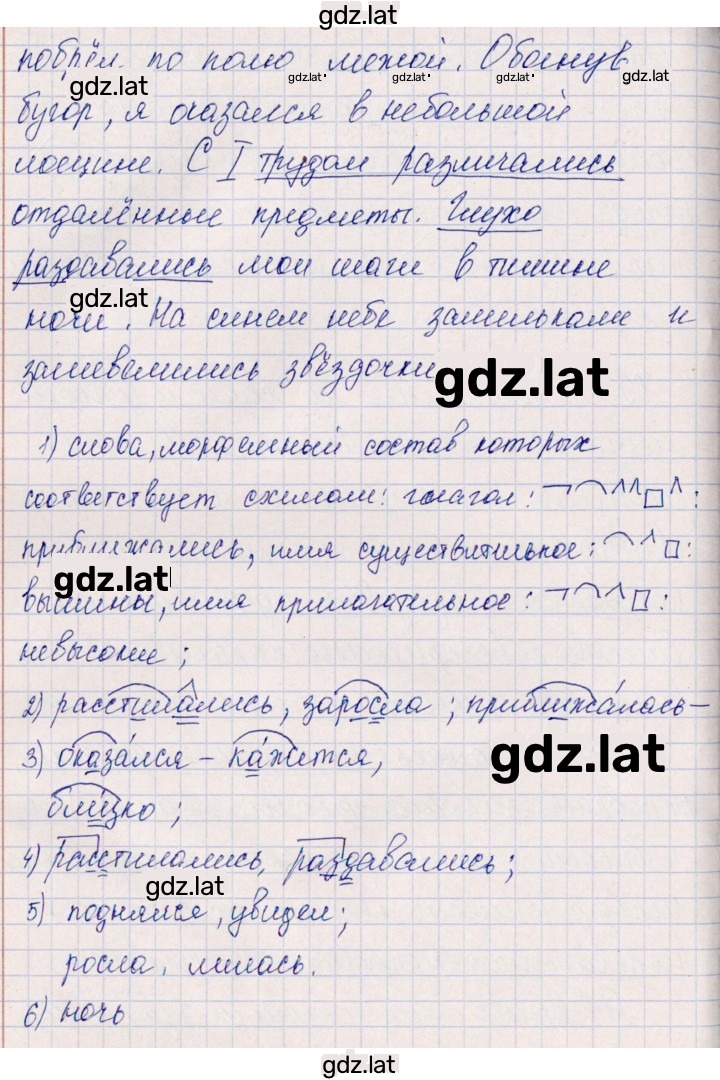 gdz.lat
побрёл по полю межой. Обогнув
gdz.lat gdz.lat gdz.lat gdz.lat
бугор, я оказался в небольшой
лощине. С I трудом различались
gdz.lat
отдалённые предметы. Глухо
раздавались мои шаги в тишине
gdz.lat
ночи. На синем небе замелькали и
gdz.lat
зашевелились звёздочки
gdz.lat
1) слова, морфемный состав которых
соответствует схемам: глагол:
приближались, имя существительное:
gdz.lat
вышины, имя прилагательное:
невысокие;
2) расстилались, заросла; приближалась –
3) оказался – кажется,
gdz.lat
близко;
4) расстилались, раздавались;
gdz.lat
5) поднялся, увидел;
росла, лилась.
6) ночь
gdz.lat